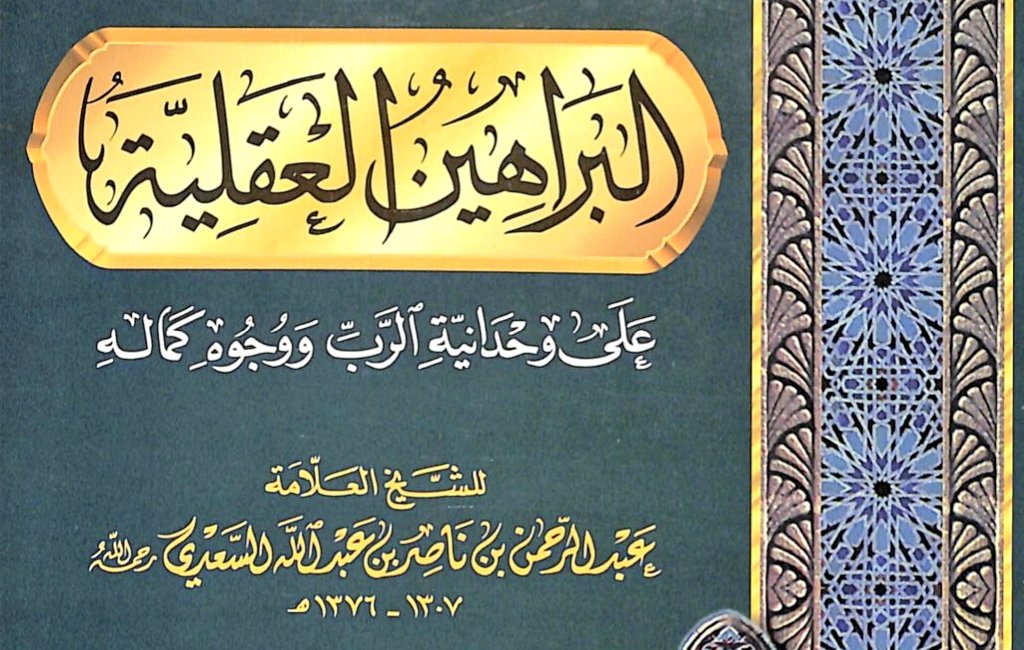 البَرَاهِينُ العَقلِيَّة
عَلَى وَحْدَانِيَّةِ ٱلرَّبِّ وَوُجُوهِ كَمَالِهِ
للشَّيخ العَلَّامَة
عَبْدِ الرَّحْمٰن بن نَاصِر بن عَبْد ٱللَّه السَّعْدِي رحمه الله
١٣٠٧ - ١٣٧٦ هـ